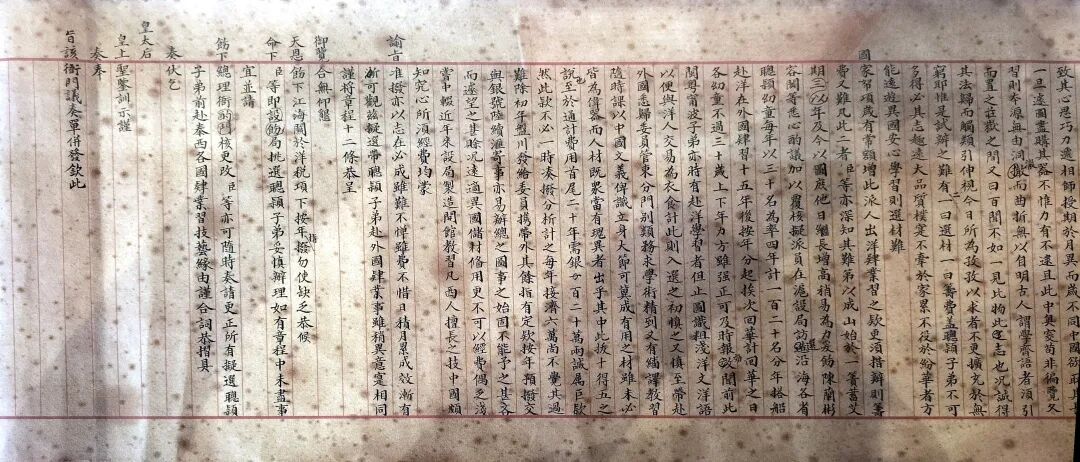 致其心思巧力遞相師授期於月異而歲不同中國欲取其長
一旦遽圖盡購其器不惟力有不逮且此中奧窔苟非徧覽久
習則本原無由洞澈而曲折無以自明古人謂學齊語者須引
而置之莊嶽之間又曰百聞不如一見比物此志也況誠得
其法歸而觸類引伸視今日所為孜孜以求者不更擴充於無
窮耶惟是試辦之難有二一曰選材一曰籌費蓋聰穎子弟不可
多得必其志趣遠大品質樸實不牽於家累不役於紛華者方
能遠遊異國安心學習則選材難
國家帑項歲有常額增此派人出洋肄業習之款更須措辦則籌
費又難凡此二者臣等亦深知其難第以成山始於一簣蓄艾
期以三年及今以圖庶他日繼長增高稍易為力爰飭陳蘭彬
容閎等悉心酌議加以覆核擬派員在滬設局訪選沿海各省
聰穎幼童每年以三十名為率四年計一百二十名分年搭船
赴洋在外國肄習十五年後按年分起挨次回華計回華之日
各幼童不過三十歲上下年力方強正可及時報效聞前此
閩粵甯波子弟亦時有赴洋學習者但止圖識粗淺洋文洋語
以便與洋人交易為衣食計此則入選之初慎之又慎至帶赴
外國悉歸委員管束分門別類務求學術精到又有繙譯教習
隨時課以中國文義俾識立身大節可冀成有用之材雖未必
皆為偉器而人材既眾當有瑰異者出乎其中此拔十得五之
說也至於通計費用首尾二十年需銀百二十萬兩誠屬巨款
然此款不必一時湊撥分析計之每年接濟六萬尚不覺其過
難除初年盤川發給委員攜帶外其餘指有定款按年預撥交
與銀號陸續滙寄事亦易辦總之圖事之始固不能予之甚吝
而遽望之甚賒況遠適異國儲材備用更不可以經費偶乏淺
嘗中輟近年來設局製造開館教習凡西人擅長之技中國頗
知究心所須經費均蒙
諭旨准撥亦以志在必成雖難不憚雖費不惜日積月累成效漸有
可觀茲擬選帶聰穎子弟赴外國肄業事雖稍異意寔相同
謹將章程十二條恭呈
御覽合無仰懇
天恩飭下江海關於洋稅項下按年指撥勿使缺乏恭候
命下臣等即設局挑選聰穎子弟妥慎辦理如有章程中未盡事
宜並請
飭下總理衙門核更改臣等亦可隨時奏請更正所有擬選聰穎
子弟前赴泰西各國肄業習技藝緣由謹合詞恭摺具
奏伏乞
皇太后
皇上聖鑒訓示謹
奏奉
旨該衙門議奏單併發欽此